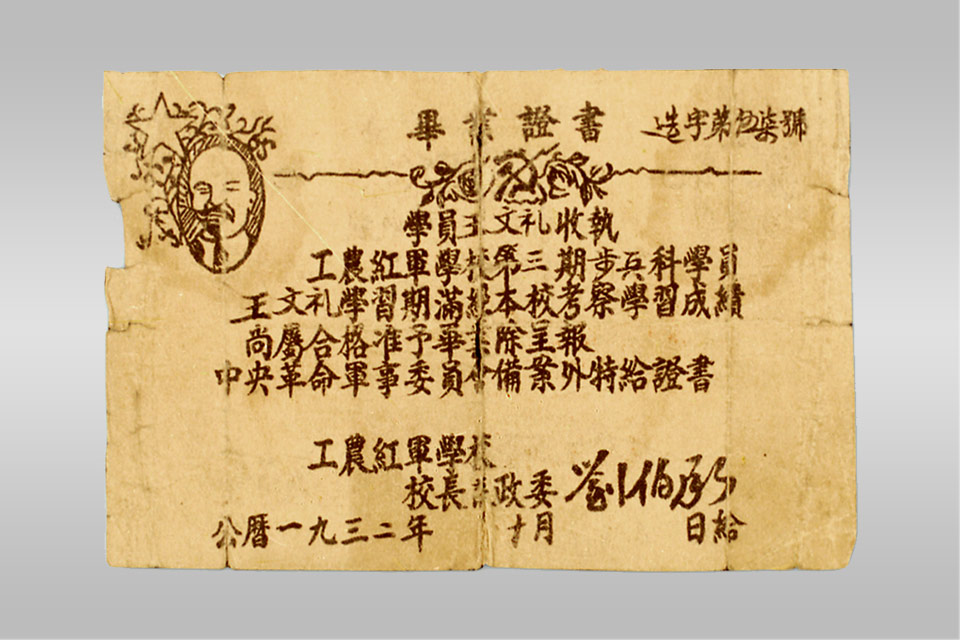 畢業證書
造字第伍柒號
學員王文礼收執
工農紅軍學校第三期步兵科學員
王文礼學習期滿經本校考察學習成績
尚屬合格准予畢業除呈報
中央革命軍事委員會備案外特給證書
工農紅軍學校
校長 政委 劉伯承
公曆一九三二年 十月 日給